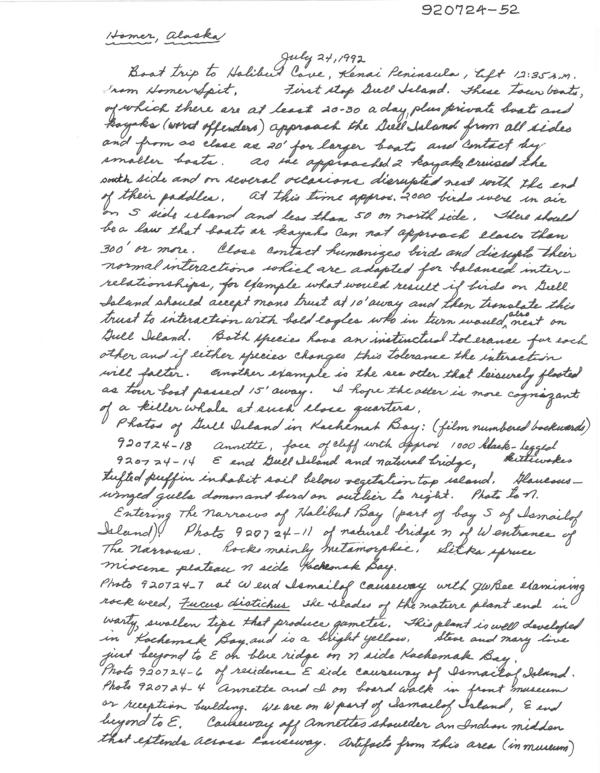 920724-52
Homer, Alaska
July 24, 1992
Boat trip to Halibut Cove, Kenai Peninsula, left 12:35 P.M.
from Homer Spit. First stop Gull Island. These tour boats,
of which there are at least 20-30 a day, plus private boats and
kayaks (worst offenders) approach the Gull Island from all sides
and from as close as 20' for larger boats and contact by
smaller boats. As we approached 2 kayaks cruised the
south side and on several occasions disrupted nest with the end
of their paddles. At this time approx. 2000 birds were in air
on S side island and less than 50 on north side. There should
be a law that boats or kayaks can not approach closer than
300' or more. Close contact humanizes birds and disrupts their
normal interactions which are adapted for balanced inter-
relationships, for example what would result if birds on Gull
Island should accept mans trust at 10' away and then translate this
trust to interaction with bald eagles who in turn would also nest on
Gull Island. Both species have an instinctual tolerance for each
other and if either species changes this tolerance the interaction
will falter. Another example is the sea otter that leisurely floated
as tour boat passed 15' away. I hope the otter is more cognizant
of a killer whale at such close quarters.
Photos of Gull Island in Kachemak Bay: (film numbered backwards)
920724-18 Annette, face of cliff with approx 1000 black-legged
kittiwakes
920724-14 E end Gull Island and natural bridge,
tufted puffin inhabit soil below vegetation top island. Glaucous-
winged gulls dominant bird on outlier to right. Photo to N.
Entering The Narrows of Halibut Bay (part of bay S of Ismailof
Island). Photo 920724-11 of natural bridge N of W entrance of
The Narrows. Rocks mainly metamorphic. Sitka spruce
miocene plateau N side Kachemak Bay.
Photo 920724-7 at W end Ismailof Causeway with JWBee examining
rock weed, Fucus distichus the blades of the mature plant end in
warty, swollen tips that produce gametes. This plant is well developed
in Kachemak Bay, and is a bright yellow. Steve and Mary live
just beyond to E on blue ridge on N side Kachemak Bay.
Photo 920724-6 of residence E side causeway of Ismailof Island.
Photo 920724-4 Annette and I on board walk in front museum
or reception building. We are on W part of Ismailof Island, E end
beyond to E. Causeway off Annettes shoulder an Indian midden
that extends across causeway. Artifacts from this area (in museum)